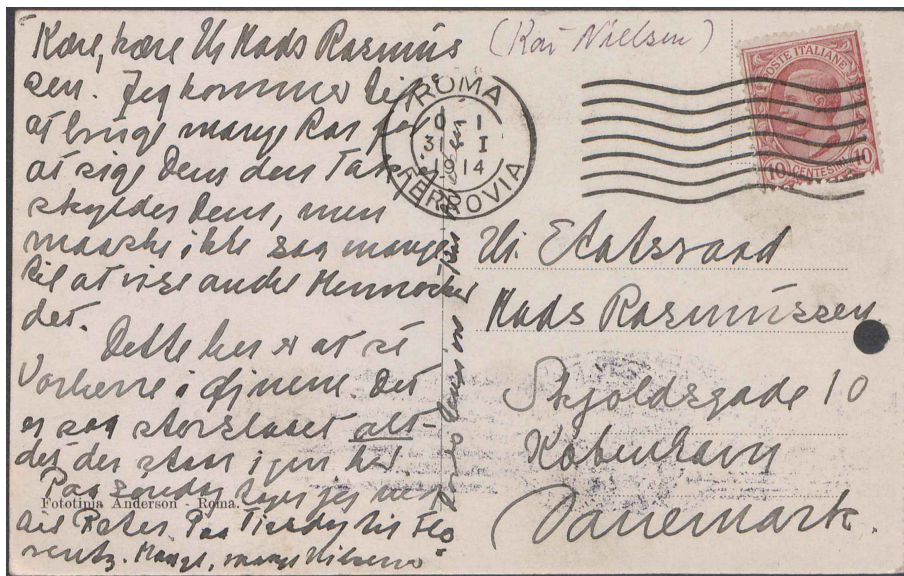 Kære, kære Hr Mads Rasmus
sen. Jeg kommer til
at bruge mange Aar for
at sige Dem den Tak jeg
skylder Dem, men
maaske ikke saa mange
til at vise andre Mennesker
det.
Dette her er at se
Vorherre i Øjnene. Det
er saa storslaaet alt-
det der staar igen her.
Paa Søndag rejser jeg
Paa Tirsdag til Flo
rentz. Mange, mange Hilsener
(Kai Nielsen)
ROMA
31 I
14
FERROVIA
POSTE ITALIANE
10 CENTESIMI 10
Hr. Etatsraad
Mads Rasmussen
Skjoldsgade 10
København
Danemark.
Fototipia Anderson - Roma.